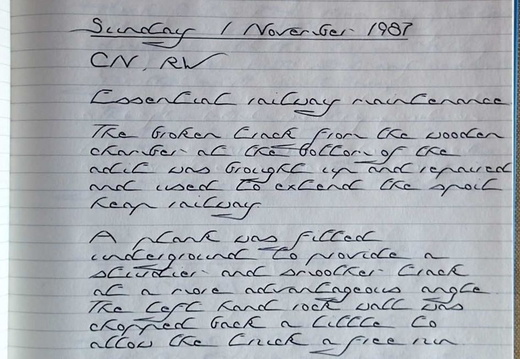 Sunday 1 November 1987
CN, RW
Essential railway maintenance
The broken track from the wooden
chamber at the bottom of the
adit was brought up and repaired
and used to extend the spoil
heap railway
A plank was fitted
underground to provide a
sturdier and smoother track
at a more advantageous angle
The left hand rock wall was
chopped back a little to
allow the truck a free run